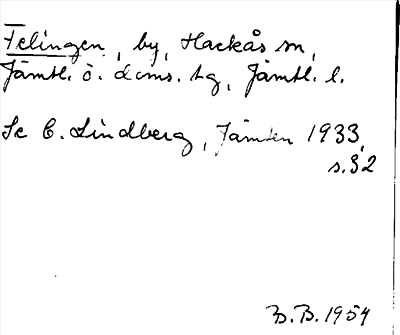 Felingen, by, Hackås sn,
Jämtl. ö. doms. tg, Jämtl. l.
Se C. Lindberg, Jämten 1933,
s. 32
B.B. 1954